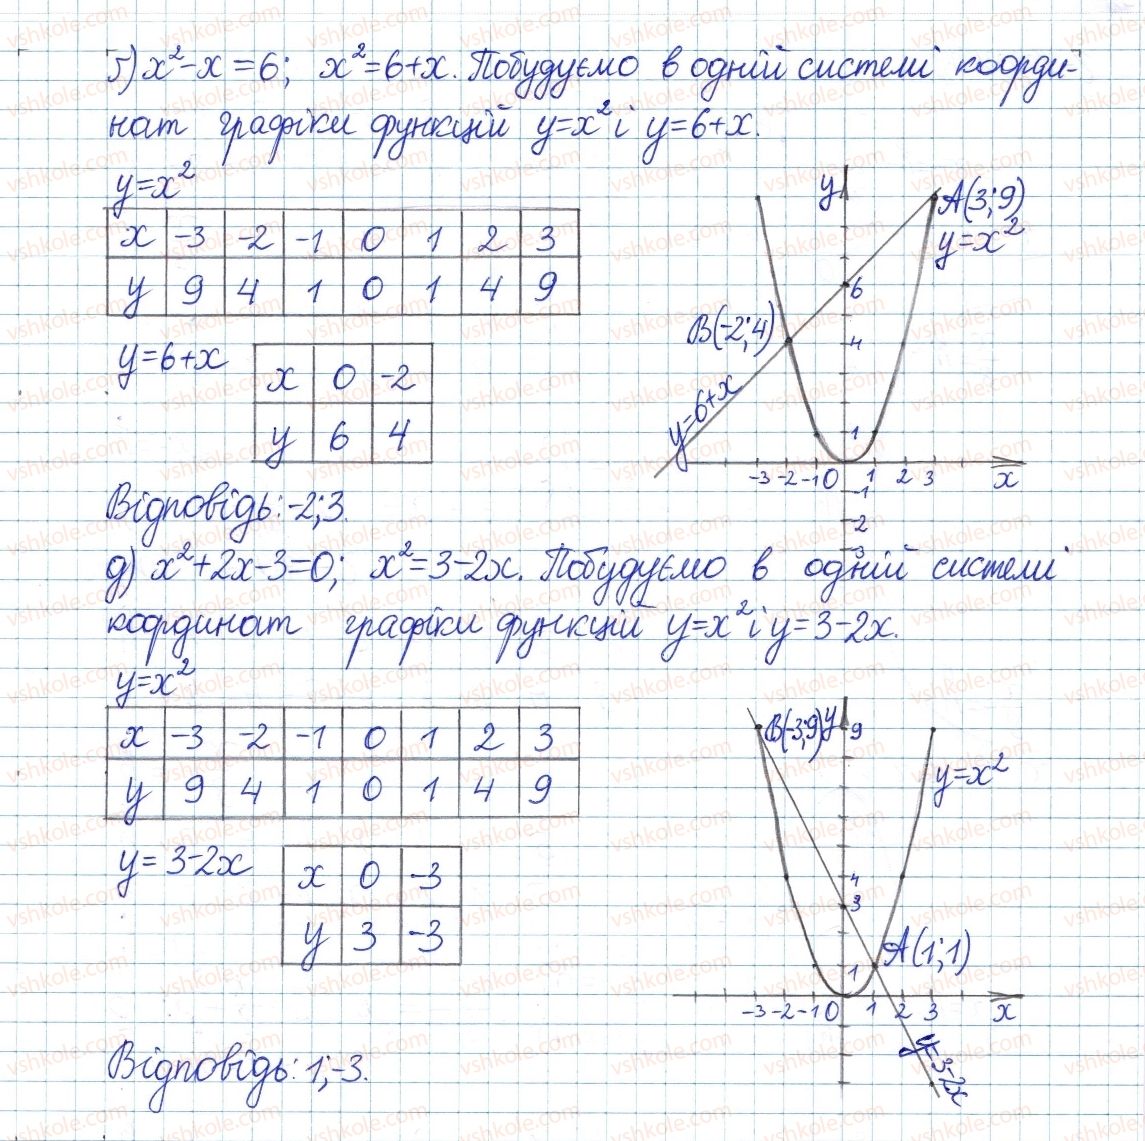 г) x²-x=6; x²=6+x. Побудуємо в одній системі коорди-
нат графіки функцій y=x² і y=6+x.
y=x²
x -3 -2 -1 0 1 2 3
y 9 4 1 0 1 4 9
y=6+x
x 0 -2
y 6 4
y
A(3;9)
y=x²
6
B(-2;4)
4
y=6+x
1
-3 -2 -1 0 1 2 3 x
-1
-2
-3
Відповідь: -2; 3.
д) x²+2x-3=0; x²=3-2x. Побудуємо в одній системі
координат графіки функцій y=x² і y=3-2x.
y=x²
x -3 -2 -1 0 1 2 3
y 9 4 1 0 1 4 9
y=3-2x
x 0 -3
y 3 -3
B(-3;9) y 9
y=x²
4
3
A(1;1)
1
-3 -2 -1 0 1 2 3 x
y=3-2x
Відповідь: 1; -3.